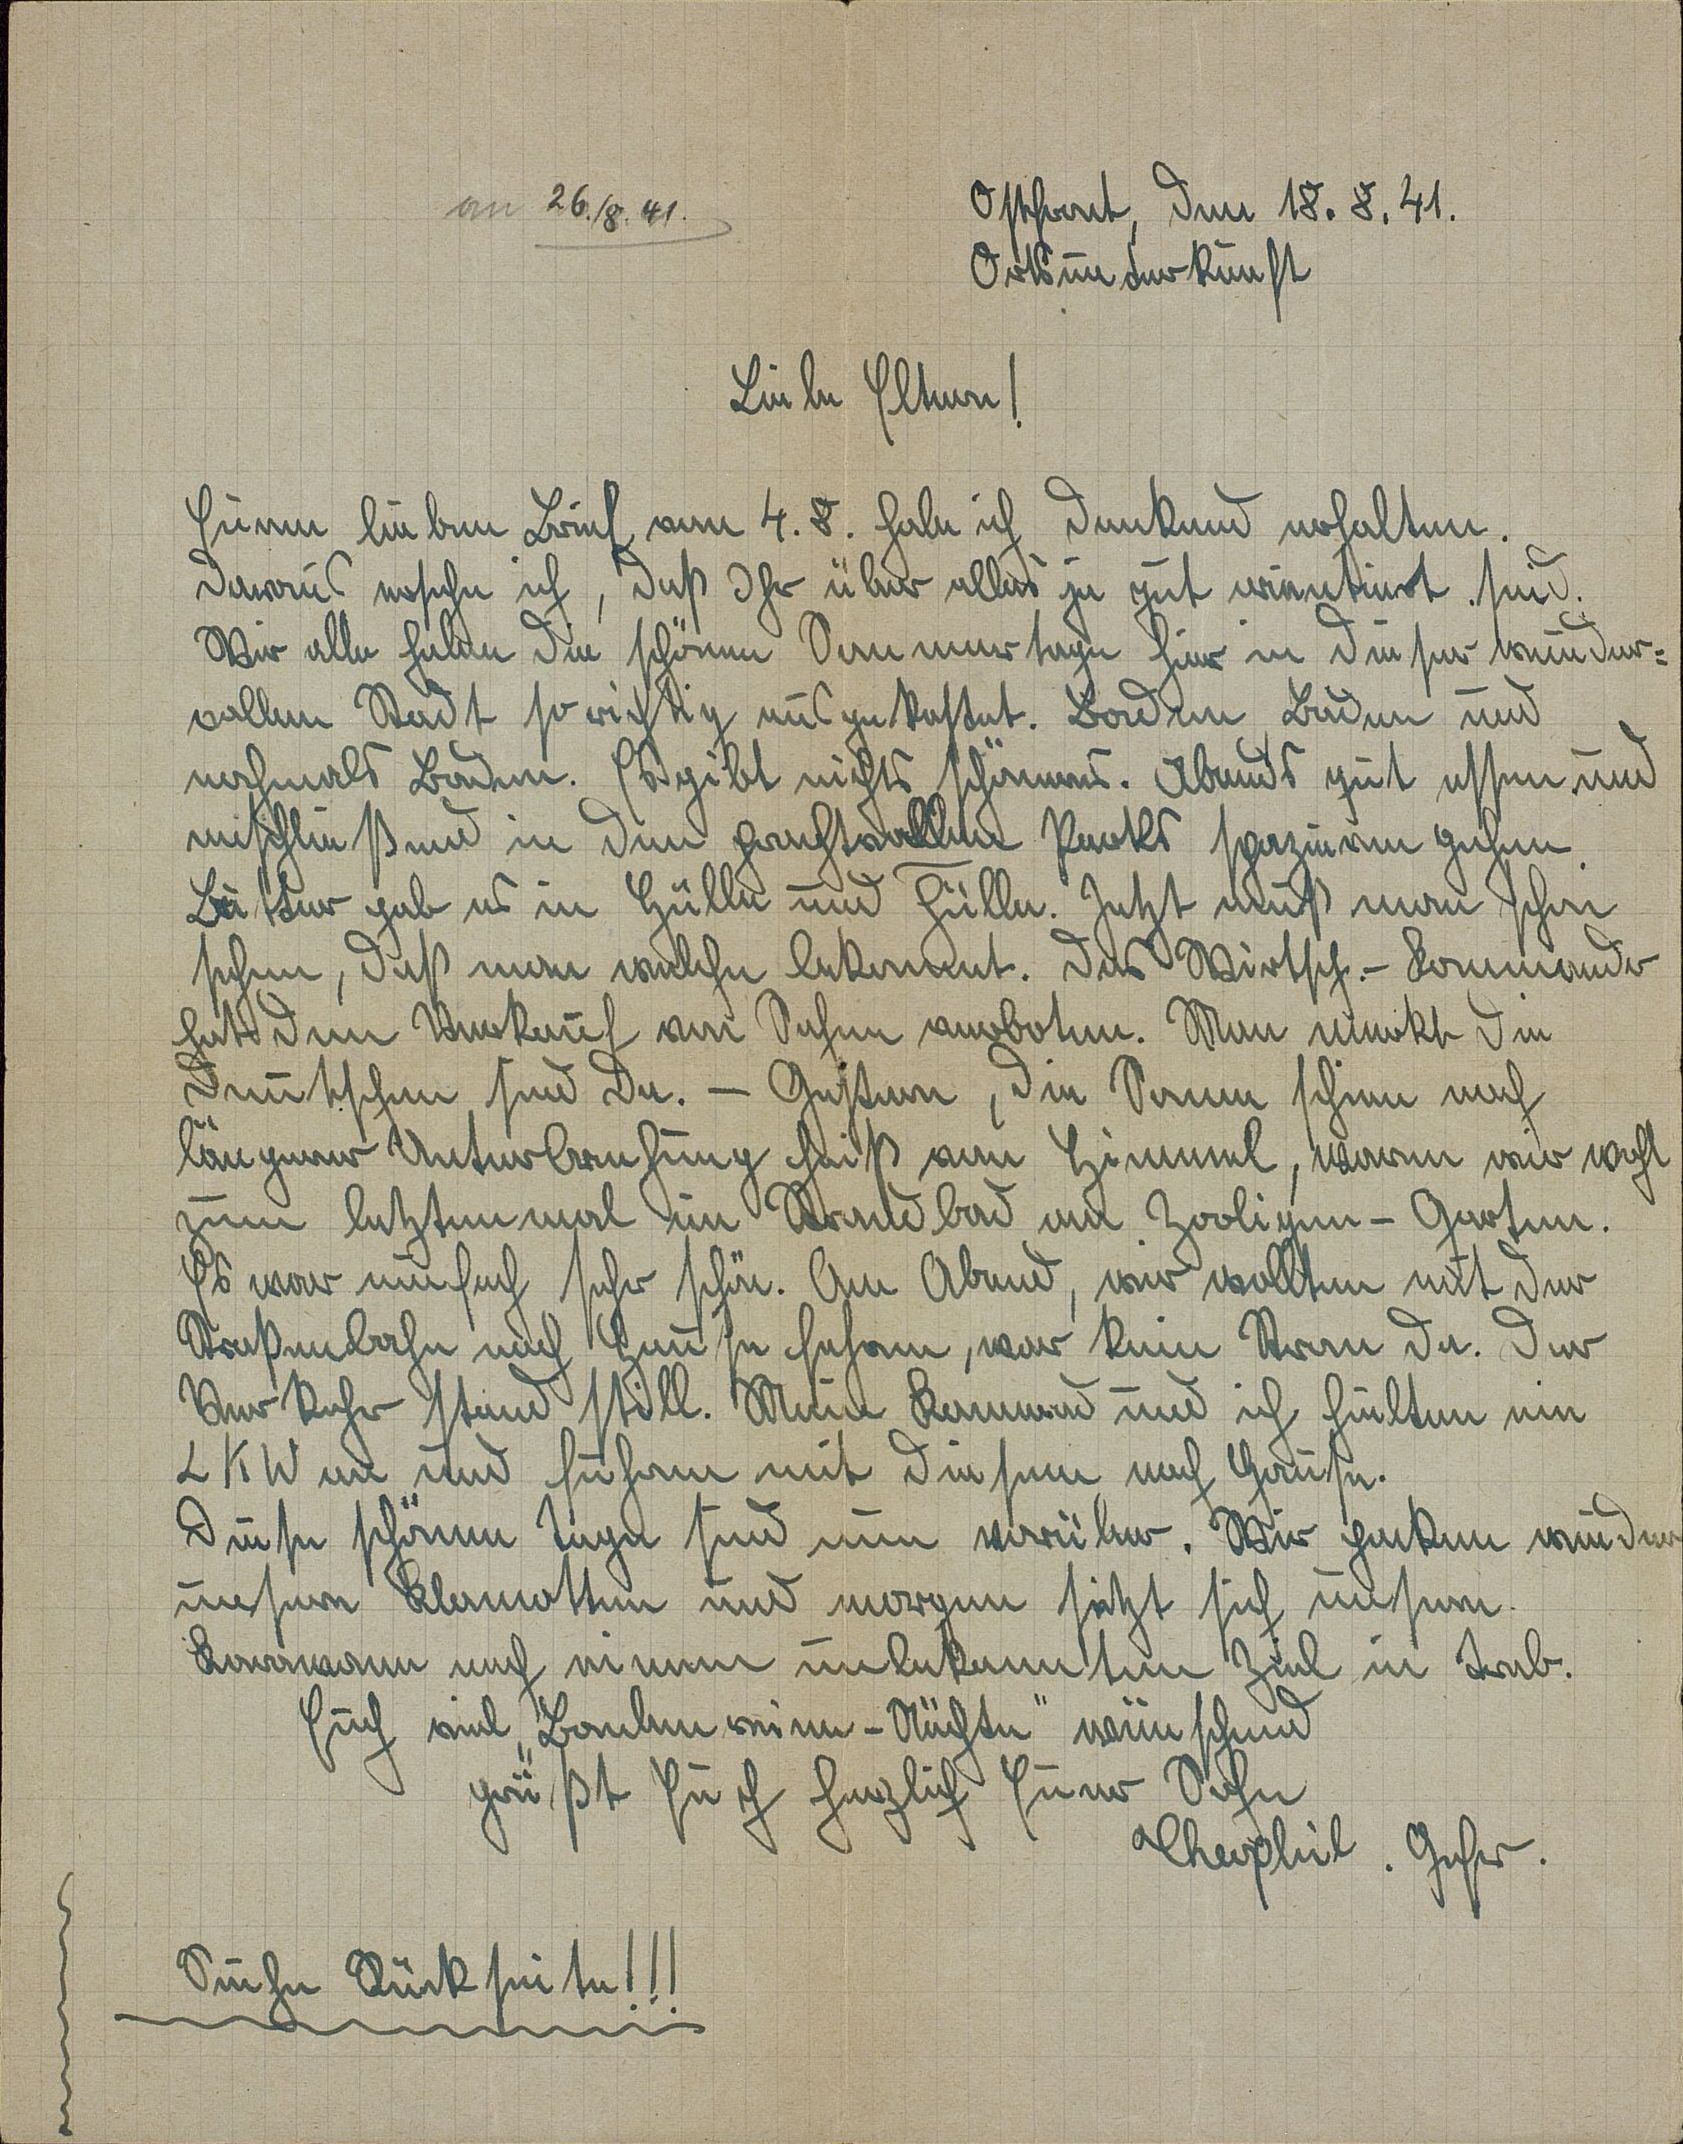 an 26./8. 41.
Ostfront, den 18. 8. 41.
Ortsunterkunft
Liebe Eltern!
Euren lieben Brief vom 4. 8. habe ich dankend erhalten.
Daraus ersehe ich, daß Ihr über alles ja gut orientiert seid.
Wir alle haben die schönen Sommertage hier in dieser wunder=
vollen Stadt so richtig ausgekostet. Baden Baden und
nochmals Baden. Es gibt nichts schöneres. Abends gut essen und
anschließend in den prachtvollen Parks spazieren gehen.
Butter gab es in Hülle und Fülle. Jetzt muß man schon
sehen, daß man welche bekommt. Das Wirtsch.-Kommando
hat den Verkauf von Sahne verboten. Man merkt die
Deutschen sind da. – Gestern, die Sonne schien nach
längerer Unterbrechung heiß vom Himmel, waren wir wohl
zum letztenmal im Strandbad am Zooligen-Garten.
Es war einfach sehr schön. Am Abend, wir wollten mit der
Straßenbahn nach Hause fahren, war kein Strom da. Der
Verkehr stand still. Mein Kamerad und ich hielten ein
LKW an und fuhren mit diesem nach Hause.
Diese schönen Tage sind nun vorüber. Wir packen wieder
unsere Klamotten und morgen setzt sich unsere
Karawane nach einem unbekannten Ziel in Trab.
Euch viel „Bombenreine-Nächte" wünschend
grüßt Euch herzlich Euer Sohn
Theophil. Gefr.
Siehe Rückseite!!!